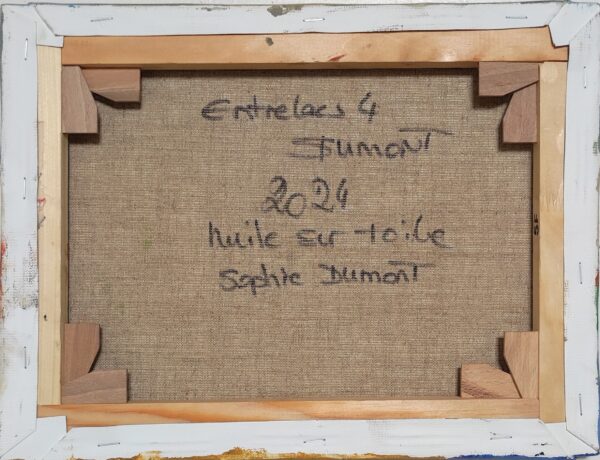 Entrelacs 4
SDUMONT
2024
huile sur toile
Sophie DUMONT
5F